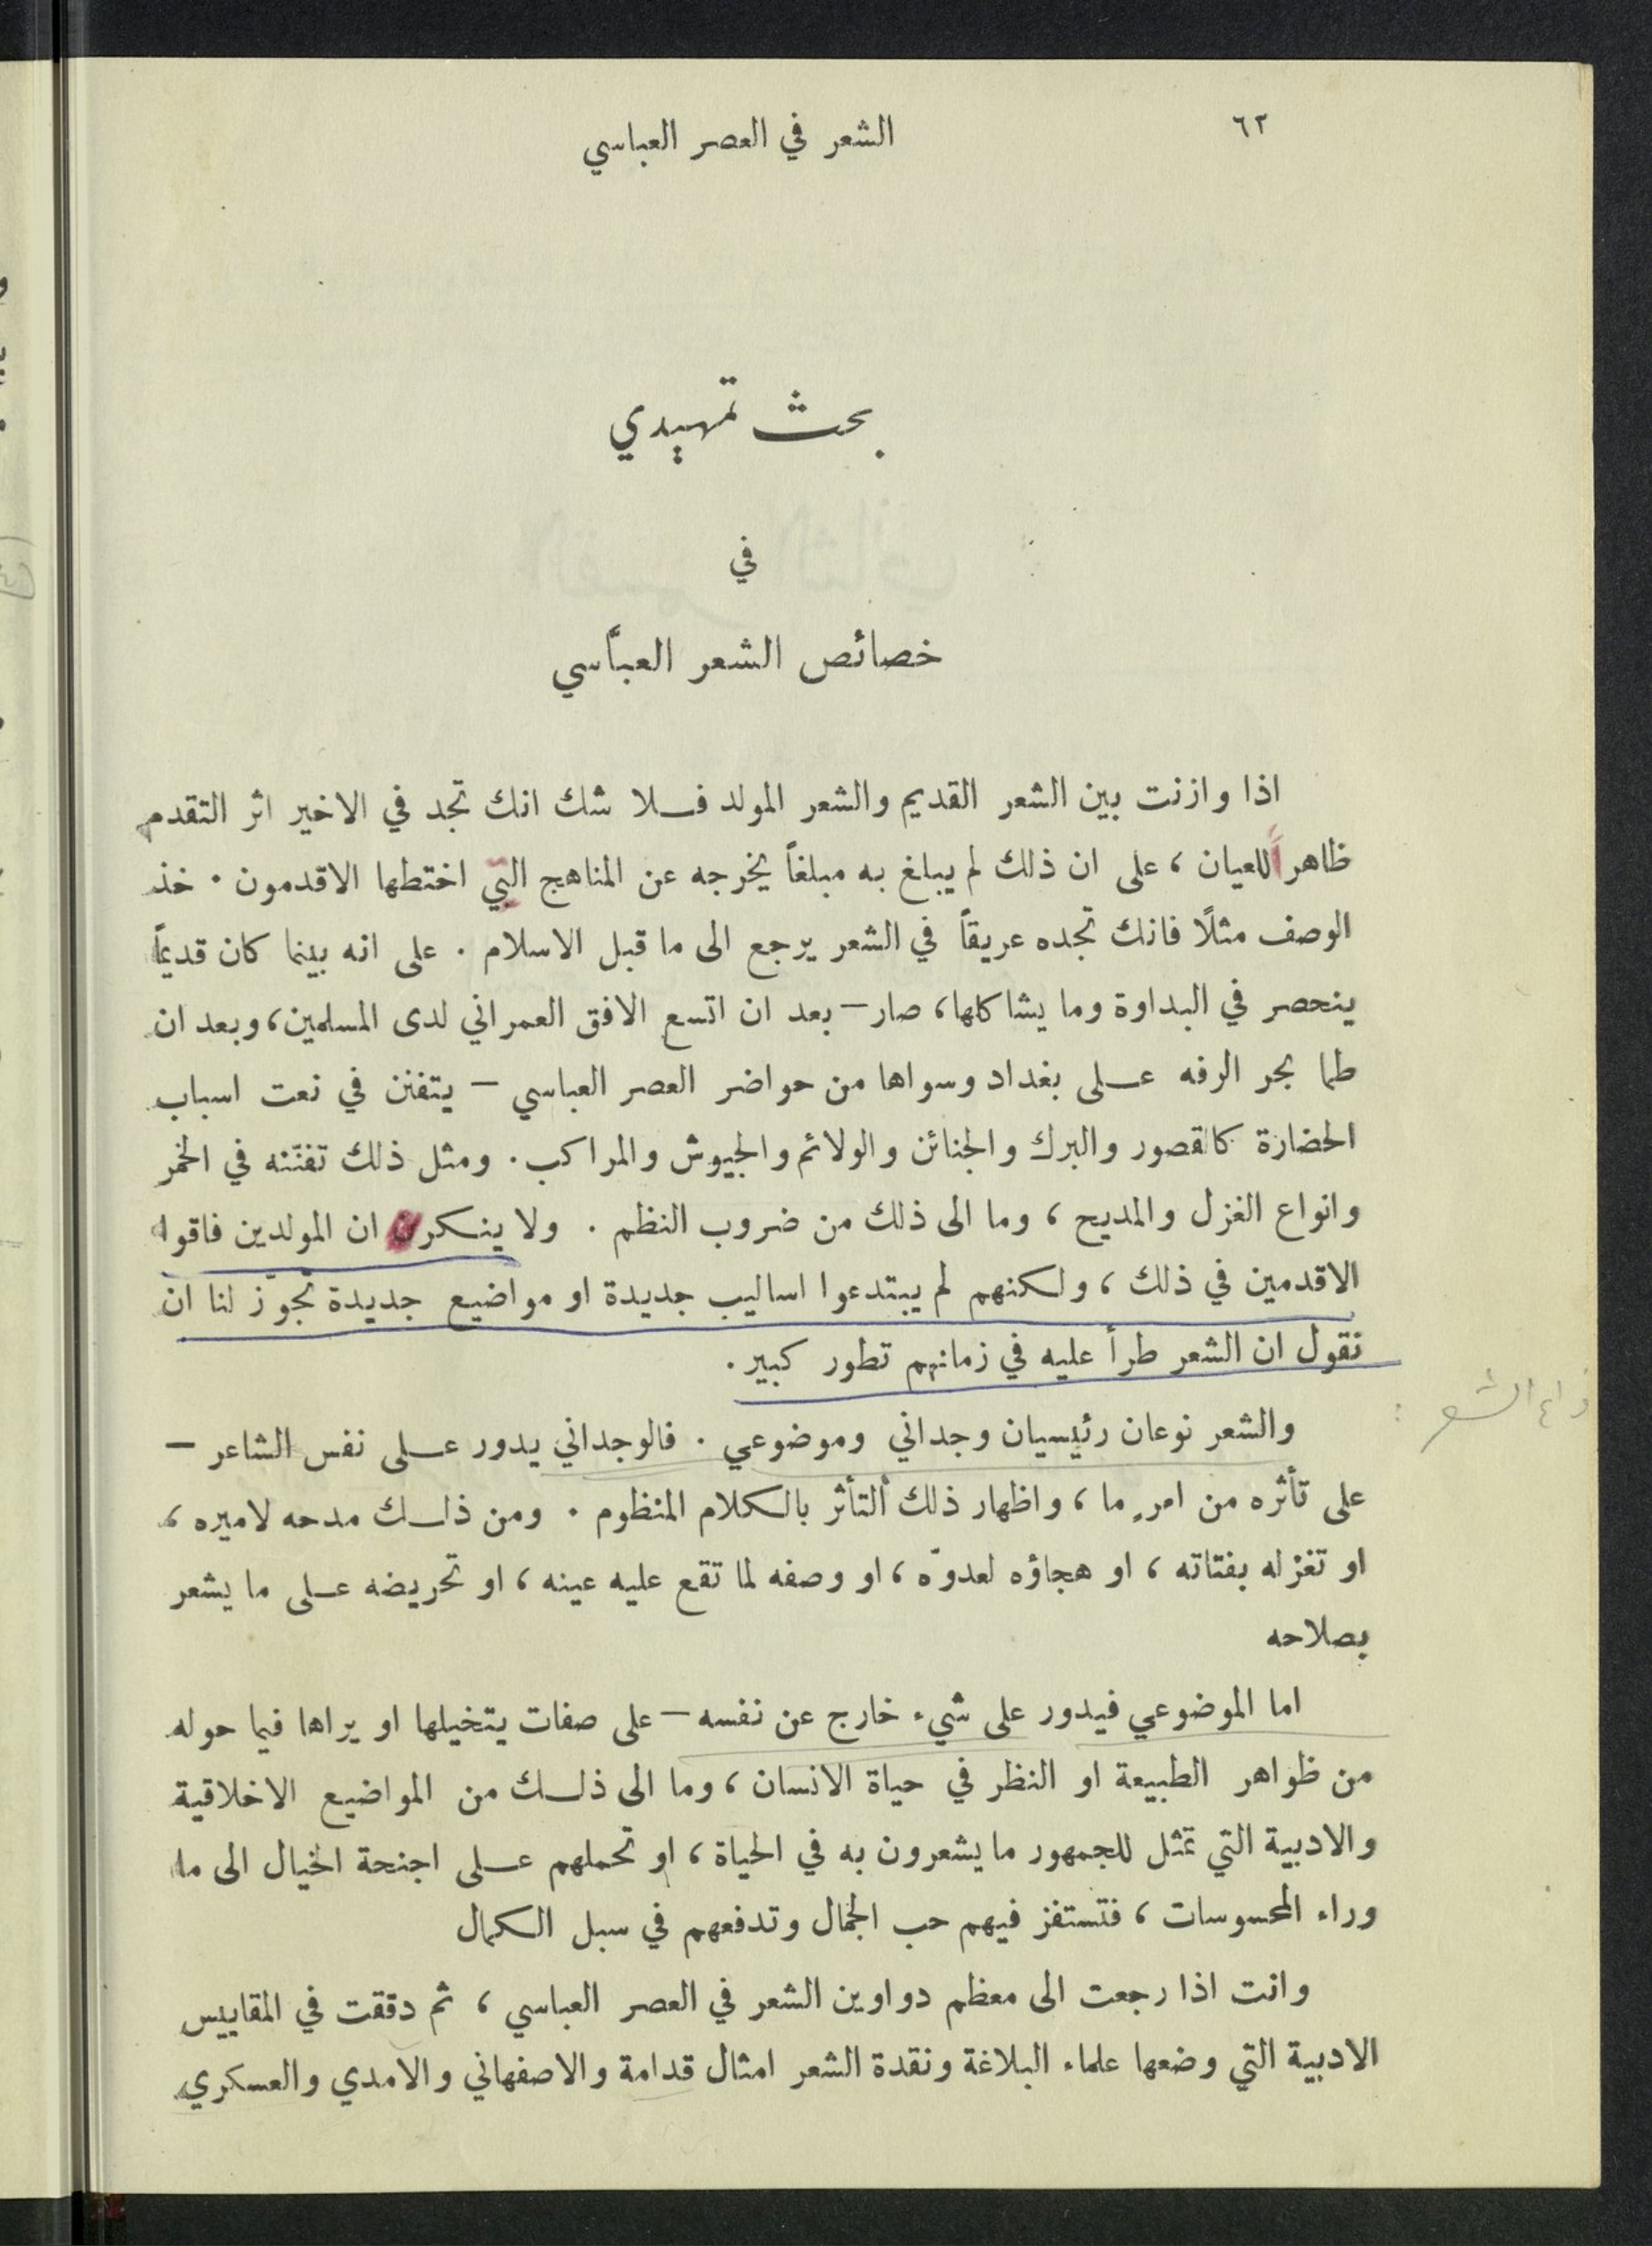 ٦٢
الشعر في العصر العباسي
بحث تمهيدي
في
خصائص الشعر العبّاسي
اذا وازنت بين الشعر القديم والشعر المولد فلا شك انك تجد في الاخير اثر التقدم
ظاهراً للعيان ، على ان ذلك لم يبلغ به مبلغاً يخرجه عن المناهج التي اختطها الاقدمون . خذ
الوصف مثلًا فانك تجده عريقاً في الشعر يرجع الى ما قبل الاسلام . على انه بينما كان قديماً
ينحصر في البداوة وما يشاكلها، صار – بعد ان اتسع الافق العمراني لدى المسلمين، وبعد ان
طما بحر الرفه على بغداد وسواها من حواضر العصر العباسي – يتفنن في نعت اسباب
الحضارة كالقصور والبرك والجنائن والولائم والجيوش والمراكب . ومثل ذلك تفنّنه في الخمر
وانواع الغزل والمديح ، وما الى ذلك من ضروب النظم . ولا ينكرن ان المولدين فاقوا
الاقدمين في ذلك ، ولكنهم لم يبتدعوا اساليب جديدة او مواضيع جديدة تجوّز لنا ان
نقول ان الشعر طرأ عليه في زمانهم تطور كبير .
والشعر نوعان رئيسيان وجداني وموضوعي . فالوجداني يدور على نفس الشاعر –
على تأثره من امرٍ ما ، واظهار ذلك التأثر بالكلام المنظوم . ومن ذلك مدحه لاميره ،
او تغزله بفتاته ، او هجاؤه لعدوّه ، او وصفه لما تقع عليه عينه ، او تحريضه على ما يشعر
بصلاحه
اما الموضوعي فيدور على شيء خارج عن نفسه – على صفات يتخيلها او يراها فيما حوله
من ظواهر الطبيعة او النظر في حياة الانسان ، وما الى ذلك من المواضيع الاخلاقية
والادبية التي تمثل للجمهور ما يشعرون به في الحياة ، او تحملهم على اجنحة الخيال الى ما
وراء المحسوسات ، فتستفز فيهم حب الجمال وتدفعهم في سبل الكمال
وانت اذا رجعت الى معظم دواوين الشعر في العصر العباسي ، ثم دققت في المقاييس
الادبية التي وضعها علماء البلاغة ونقدة الشعر امثال قدامة والاصفهاني والامدي والعسكري